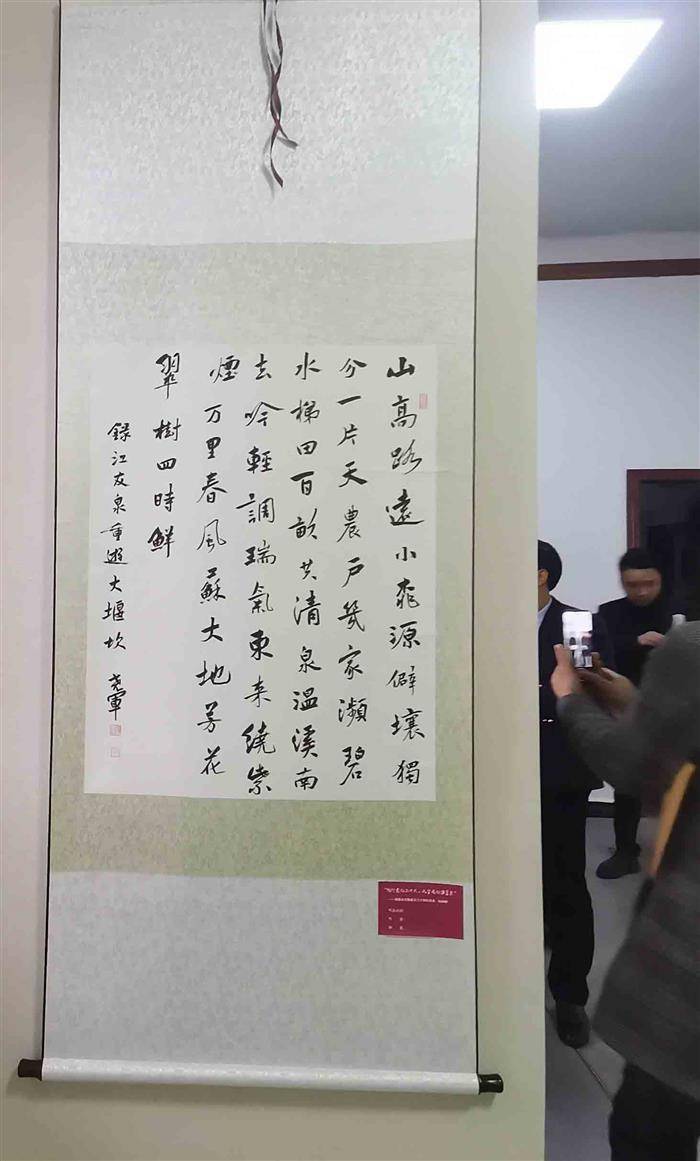 山高路遠小桃源僻壤獨
分一片天農戶幾家瀕碧
水梯田百畝共清泉溫溪南
去吟輕調瑞氣東来繞紫
煙万里春風蘇大地芳花
翠樹四時鮮
錄江友泉重遊大堰坎 尧軍